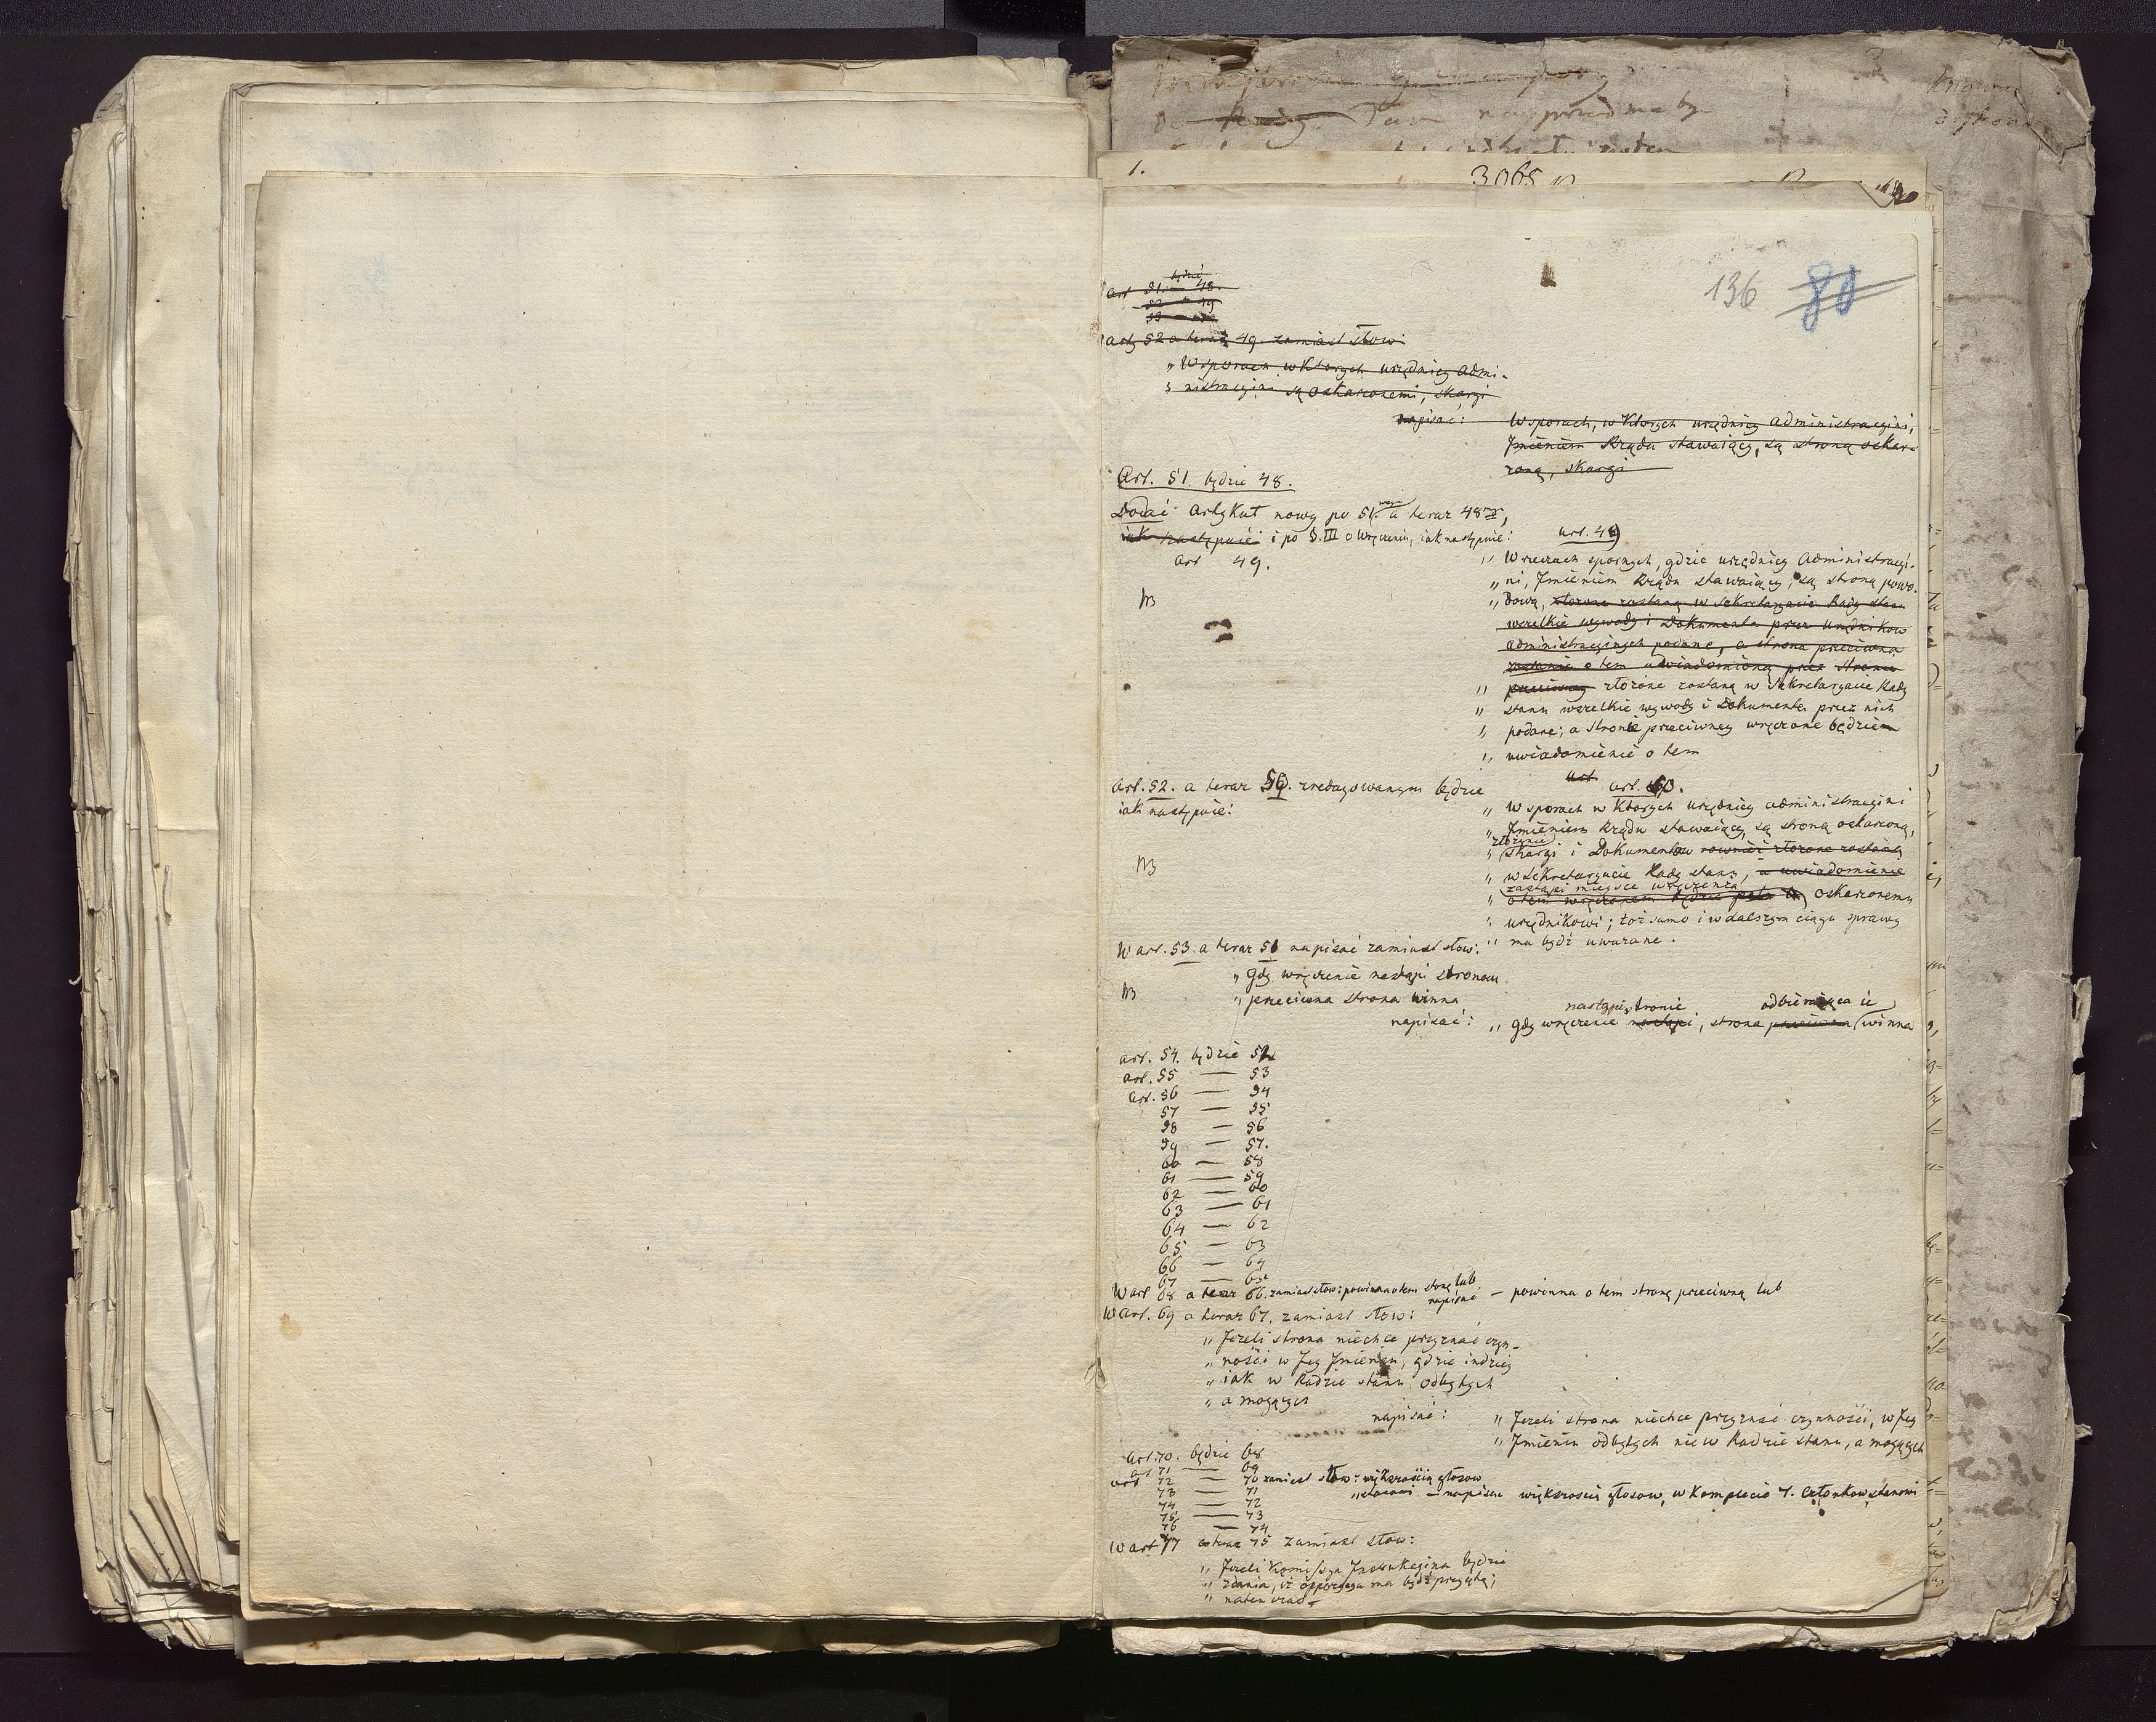 do Rady Tam
1.
3065
136 80
będzie
Art 51. — 48.
52 — 49
53 — 50
Art 52 a teraz 49. zamiast słow:
„ W sporach w których urzędnicy admi-
„ nistracyini są oskarżonemi, skargi
napisać: W sporach, w których urzędnicy administracyini,
Jmieniem Rządu stawaiący, są stroną oskar-
żoną, skargi
Art. 51. będzie 48.
Dodać Artykuł nowy po 51. a teraz 48m,
iak następuie i po §. III o wręczeniu, iak następuie: art. 49
Art 49.
„ W rzeczach spornych, gdzie urzędnicy Administracyi-
„ ni, Jmieniem Rządu stawaiący, są stroną powo-
NB
„ dową, złożone zostaną w Sekretaryacie Rady stanu
wszelkie wywody i Dokumenta przez Urzędnikow
administracyinych podane, a strona przeciwna
zostanie o tem uwiadomioną przez stronie
„ przeciwney złożone zostaną w Sekretaryacie Rady
„ stanu wszelkie wywody i Dokumenta przez nich
„ podane; a stronie przeciwney wręczone będzie
„ uwiadomienie o tem
Art
Art. 52. a teraz 50. zredagowanym będzie art. 50.
iak następuie:
„ W sporach w których urzędnicy administracyini
„ Jmieniem Rządu stawaiący, są stroną oskarżoną,
złożenie
„ skargi i Dokumentow rownież złożone zostaną
NB
„ w Sekretaryacie Rady stanu, a uwiadomienie
zastąpi mieysce wręczenia
„ o tem wręczonem będzie oskarżonemu
„ urzędnikowi; toż samo i w dalszym ciągu sprawy
„ ma bydź uważane.
W art. 53. a teraz 51 napisać zamiast słow:
„ Gdy wręczenie nastąpi stronom
NB
„ przeciwna strona winna
nastąpi stronie odbieraiąca ie
napisać: „ Gdy wręczenie nastąpi, strona przeciwna winna
art. 54. będzie 52
art. 55 — 53
art. 56 — 54
57 — 55
58 — 56
59 — 57.
60 — 58
61 — 59
62 — 60
63 — 61
64 — 62
65 — 63
66 — 64
67 — 65
W art 68 a teraz 66. zamiast słow: powinna o tem stronę lub
napisać — powinna o tem stronę przeciwną lub
W art. 69 a teraz 67. zamiast słow:
„ Jeżeli strona niechce przyznać czyn-
„ ności w Jey Jmieniu, gdzie indziey
„ iak w Radzie stanu odbytych
„ a mogących
napisać: „ Jeżeli strona niechce przyznać czynności, w Jey
„ Jmieniu odbytych nie w Radzie stanu, a mogących
Art. 70. będzie 68
art 71 — 69
art 72 — 70 zamiast słow: większością głosow
73 — 71 „ stanowi — napisać większością głosow, w komplecie 7. Członkow, stanowi
74 — 72
75 — 73
76 — 74
W art 77 a teraz 75 zamiast słow:
„ Jeżeli Kommissya Jnstrukcyina będzie
„ zdania, iż oppozycya ma bydź przyiętą;
„ natenczas